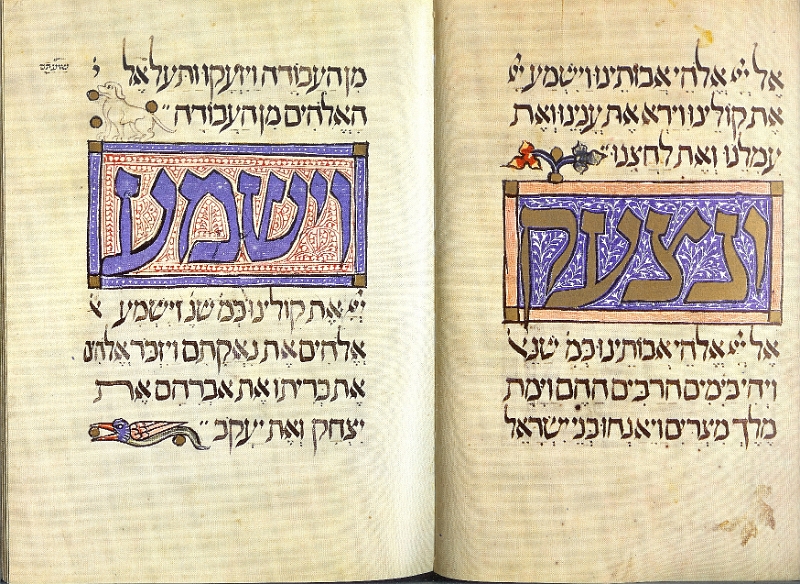 אל ייי אלהי אבותינו וישמע ייי
את קולינו וירא את ענינו ואת
עמלנו ואת לחצנו
ונצעק
אל ייי אלהי אבותינו כמ' שנ'
ויהי בימים הרבים ההם וימת
מלך מצרים ויאנחו בני ישראל
מן העבודה ויזעקו ותעל אל
שועתם
האלהים מן העבודה
וישמע
ייי את קולינו כמ' שנ' וישמע
אלהים את נאקתם ויזכר אלהים
את בריתו את אברהם את
יצחק ואת יעקב